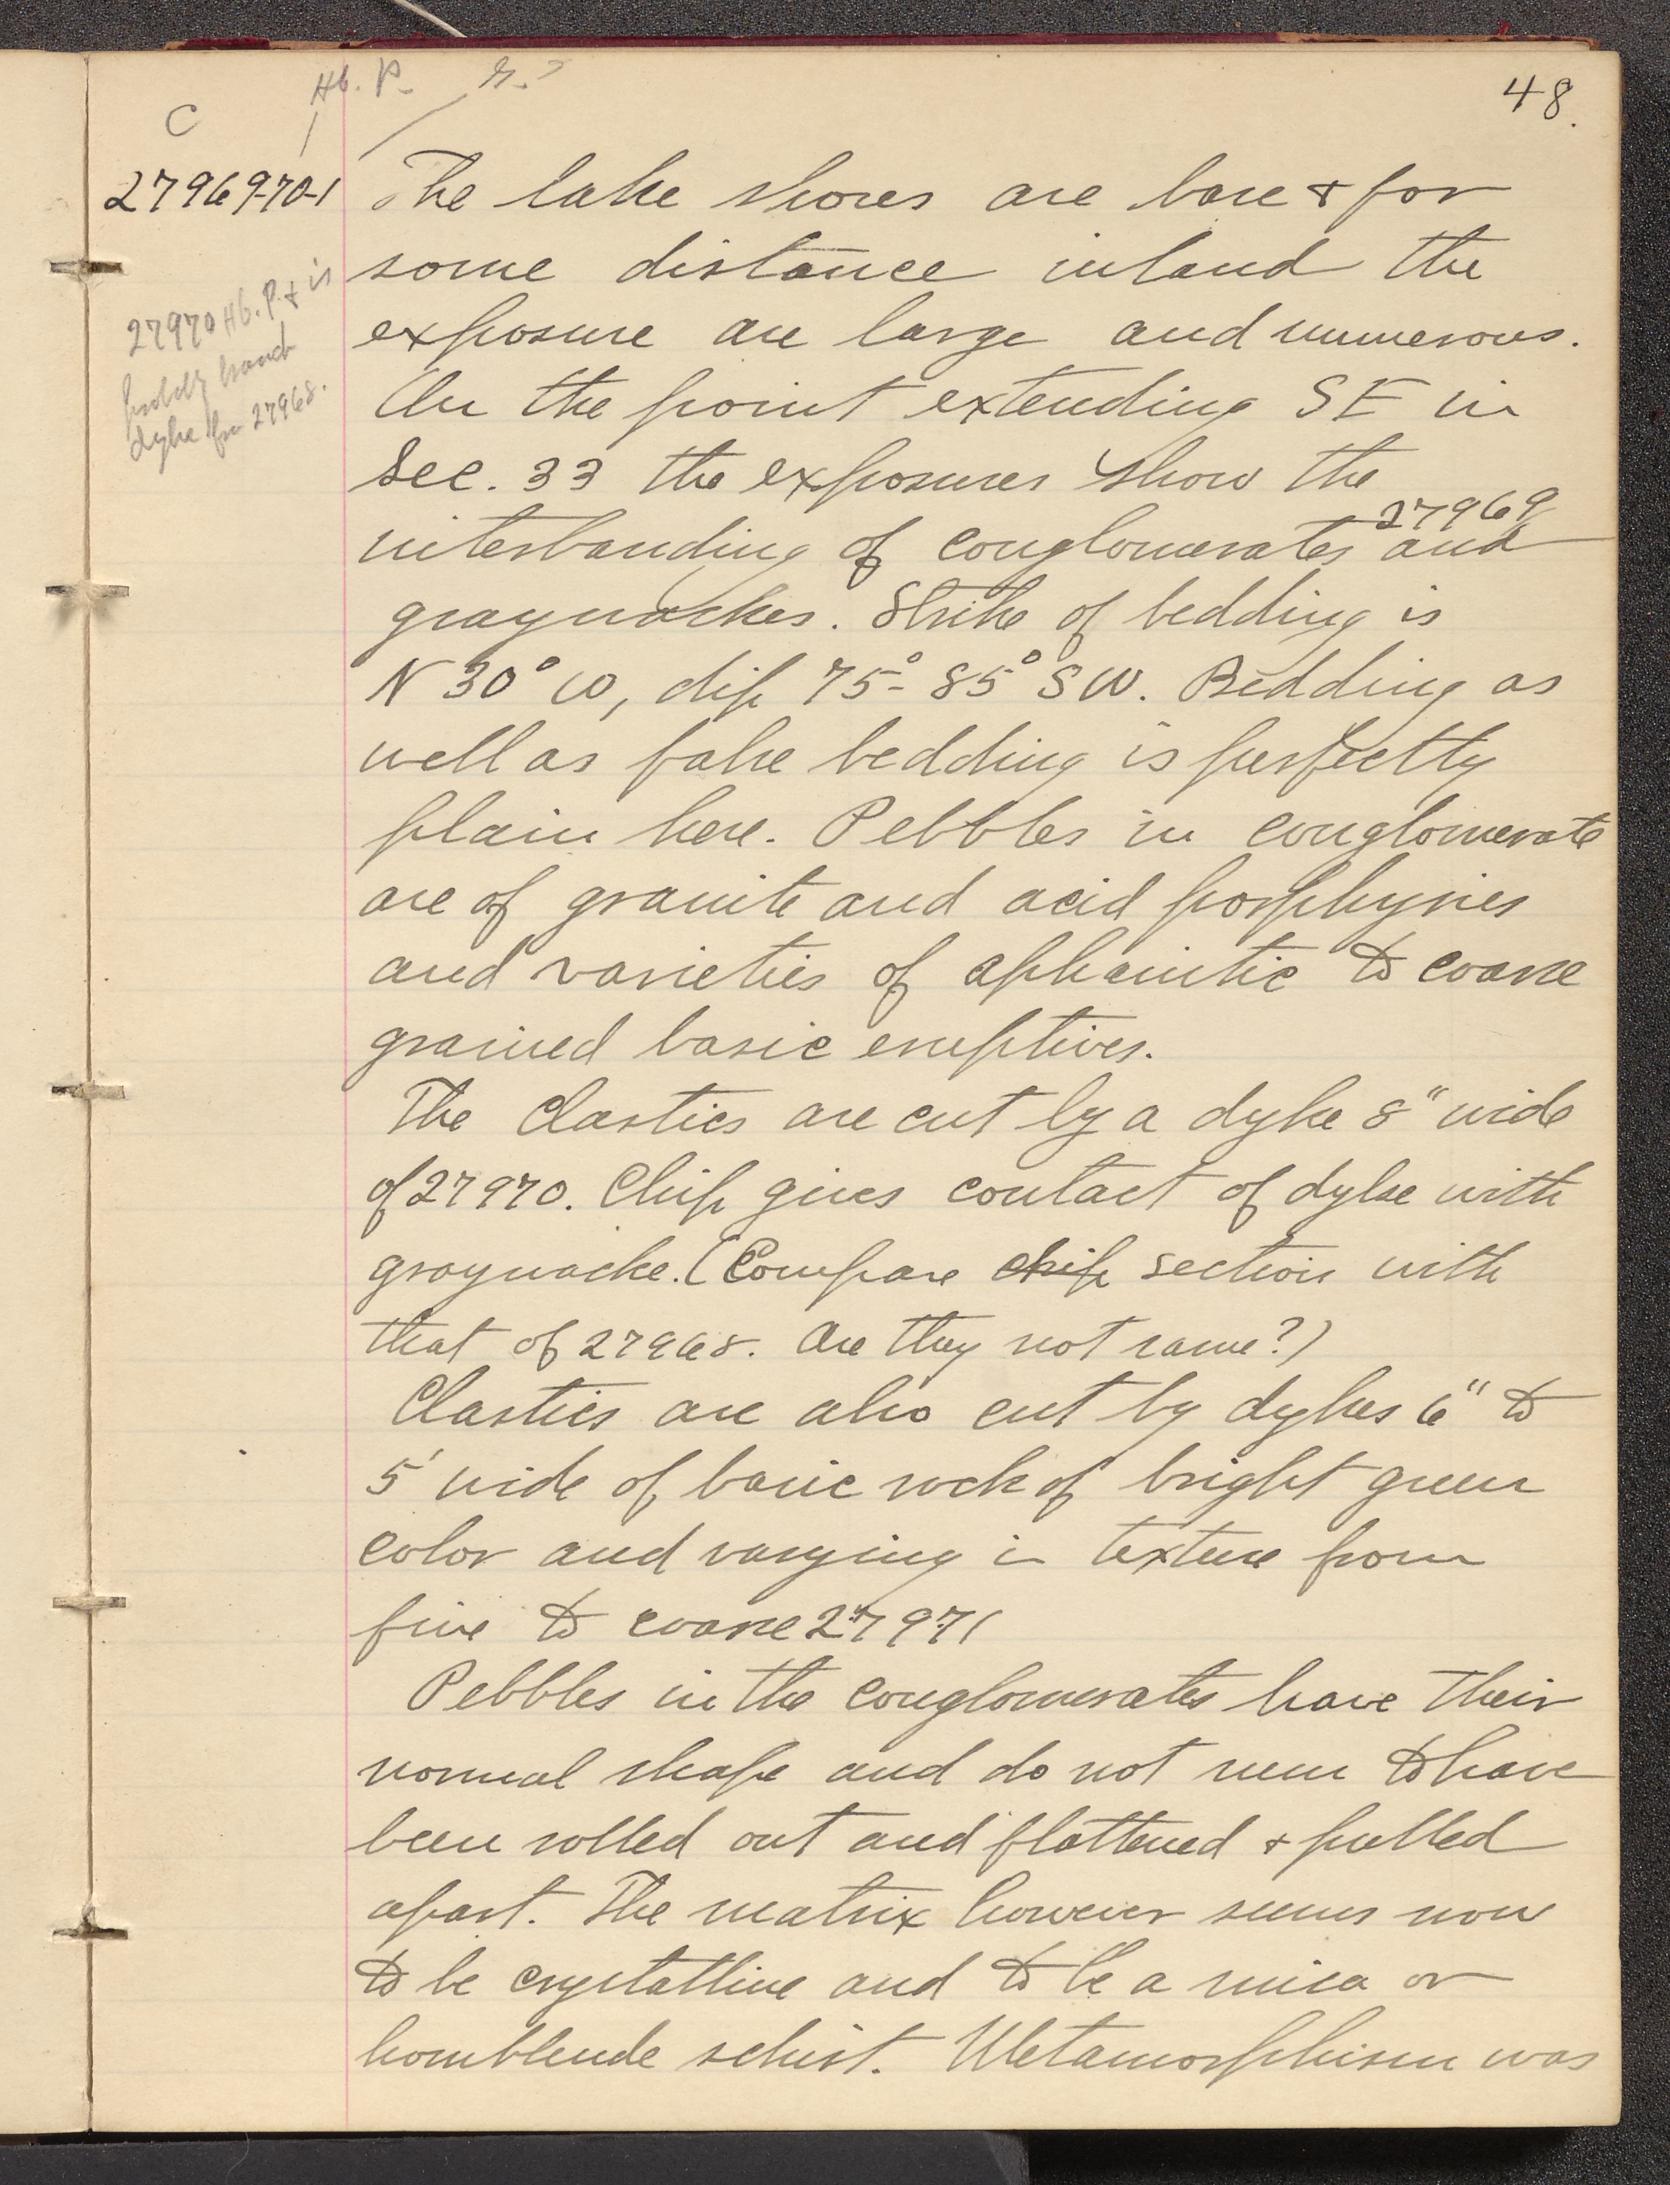 48.
Hb. P. G.?
C
27969-70-1
27970 Hb. P. & is
probbly branch
dyke fr 27968.
The lake shores are bare & for
some distance inland the
exposure are large and numerous.
On the point extending SE in
Sec. 33 the exposures show the
interbanding of conglomerates and 27969
graywackes. Strike of bedding is
N 30° W, dip 75°-85° SW. Bedding as
well as false bedding is perfectly
plain here. Pebbles in conglomerate
are of granite and acid porphyries
and varieties of aphanitic to coarse
grained basic eruptives.
The Clastics are cut by a dyke 8" wide
of 27970. Chip gives contact of dyke with
graywacke. (Compare chip section with
that of 27968. Are they not same?)
Clastics are also cut by dykes 6" to
5' wide of basic rock of bright green
color and varying in texture from
fine to coarse 27971
Pebbles in the conglomerates have their
normal shape and do not seem to have
been rolled out and flattened & pulled
apart. The matrix however seems now
to be crystalline and to be a mica or
hornblende schist. Metamorphism was